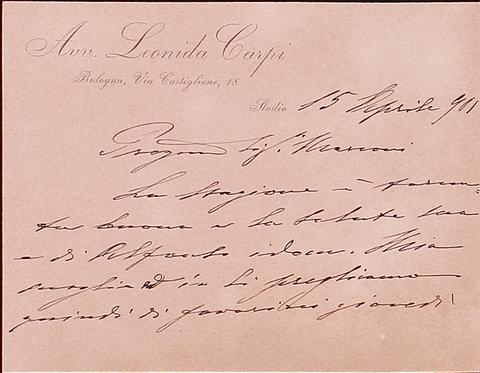 Avv. Leonida Carpi
Bologna, Via Castiglione, 18
Studio 15 Aprile 901
Sig.r Marconi
La stagione è diven-
ta buona e la salute sua
e di Alfonso idem. Mia
moglie ed io La preghiamo
quindi di favorirci giovedì